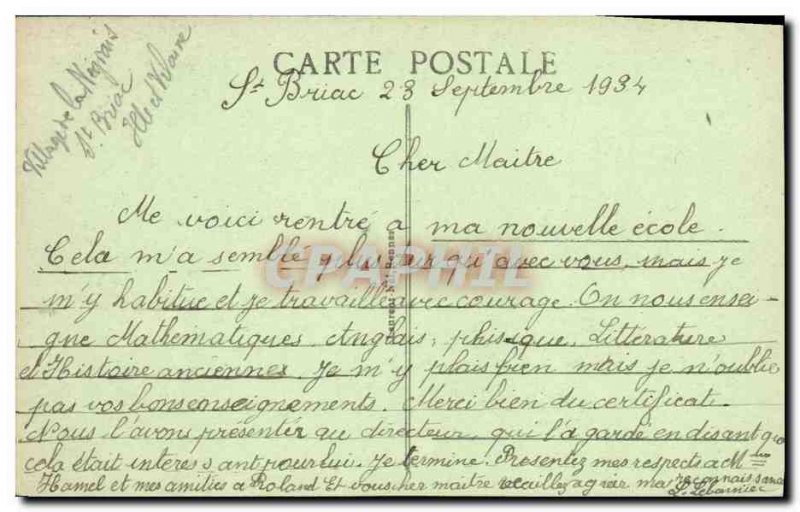 Village de la
St Briac
Ille et Vilaine
CARTE POSTALE
St Briac 28 Septembre 1934
Cher Maitre
Me voici rentré a ma nouvelle école.
Cela m'a semblé plus qu'avec vous, mais je
m'y habitue et je travaille avec courage. On nous ensei-
gne Mathematiques, Anglais, phisique, Littérature
et Histoire anciennes. Je m'y plais bien mais je n'oublie
pas vos bons enseignements. Merci bien du certificat.
Nous l'avons présenter au directeur qui l'a garde en disant que
cela était interessant pour lui. Je termine. Presentez mes respects a Mlle
Hamel et mes amities a Roland Et vous cher maitre veuillez agréer ma reconnaissance
CPAPHIL
Laurent-Nel, Rennes